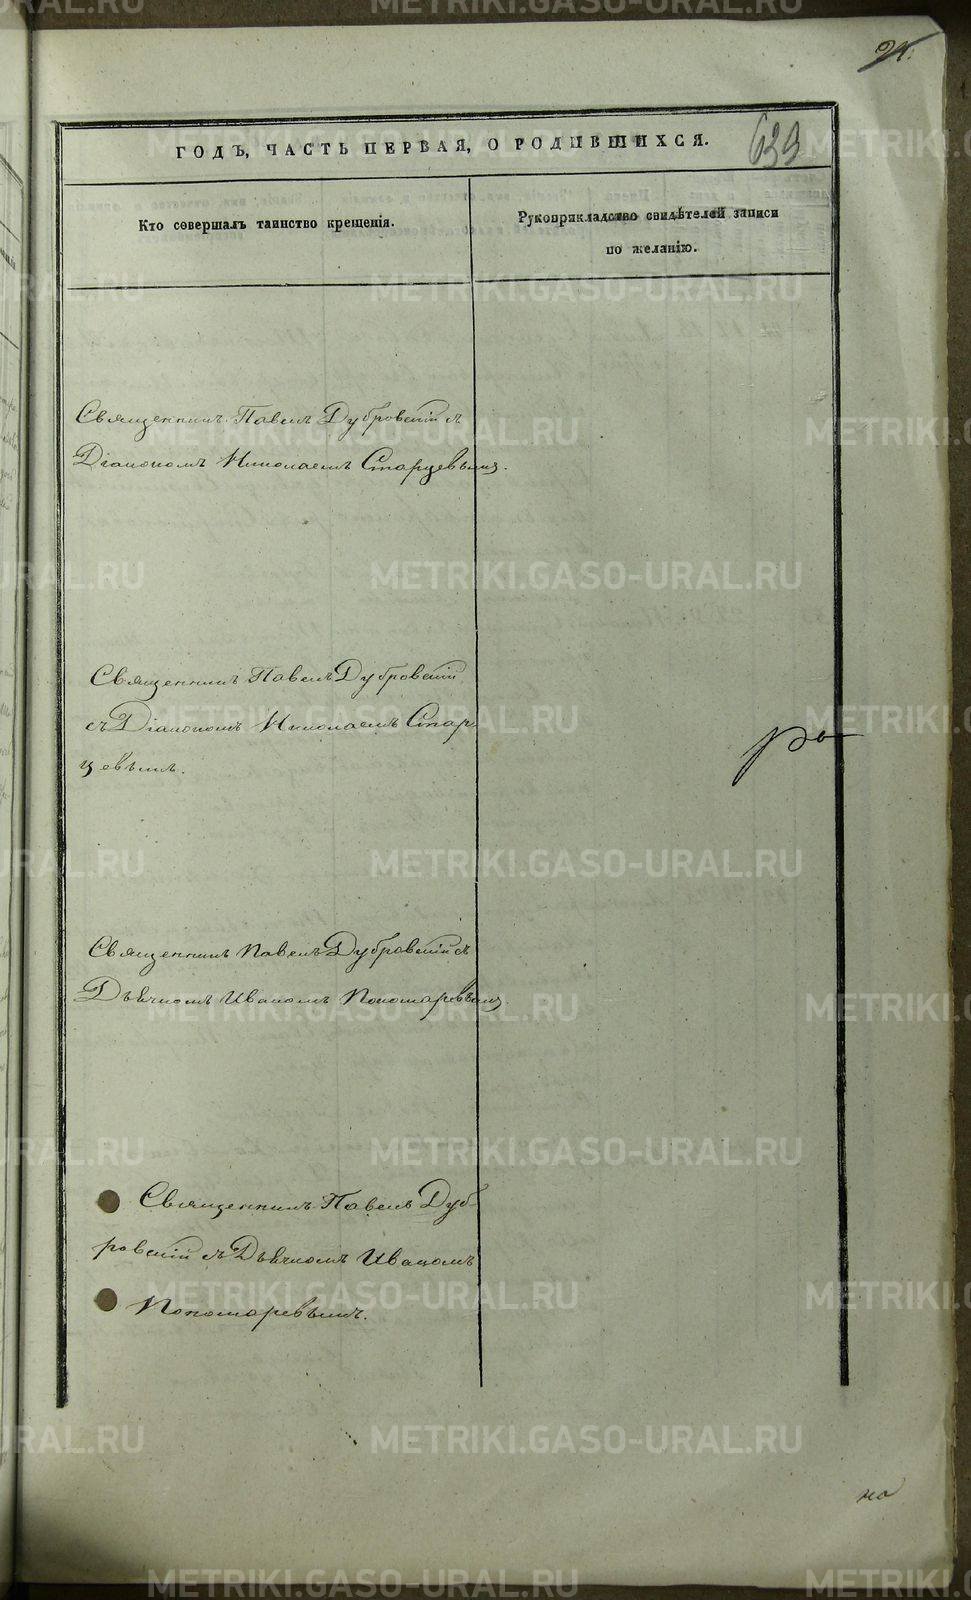 ГОДЪ, ЧАСТЬ ПЕРВАЯ, О РОДИВШИХСЯ.
633
Кто совершалъ таинство крещенія.
Рукоприкладство свидѣтелей записи
по желанію.
Священникъ Павелъ Дубровскій съ
Діакономъ Николаемъ Старцевымъ.
Священникъ Павелъ Дубровскій
съ Діакономъ Николаемъ Стар
цевымъ.
Священникъ Павелъ Дубровскій съ
Дьячкомъ Иваномъ Пономаревымъ.
Священникъ Павелъ Дуб-
ровскій съ Дьячкомъ Иваномъ
Пономаревымъ.
ро
на
METRIKI.GASO-URAL.RU